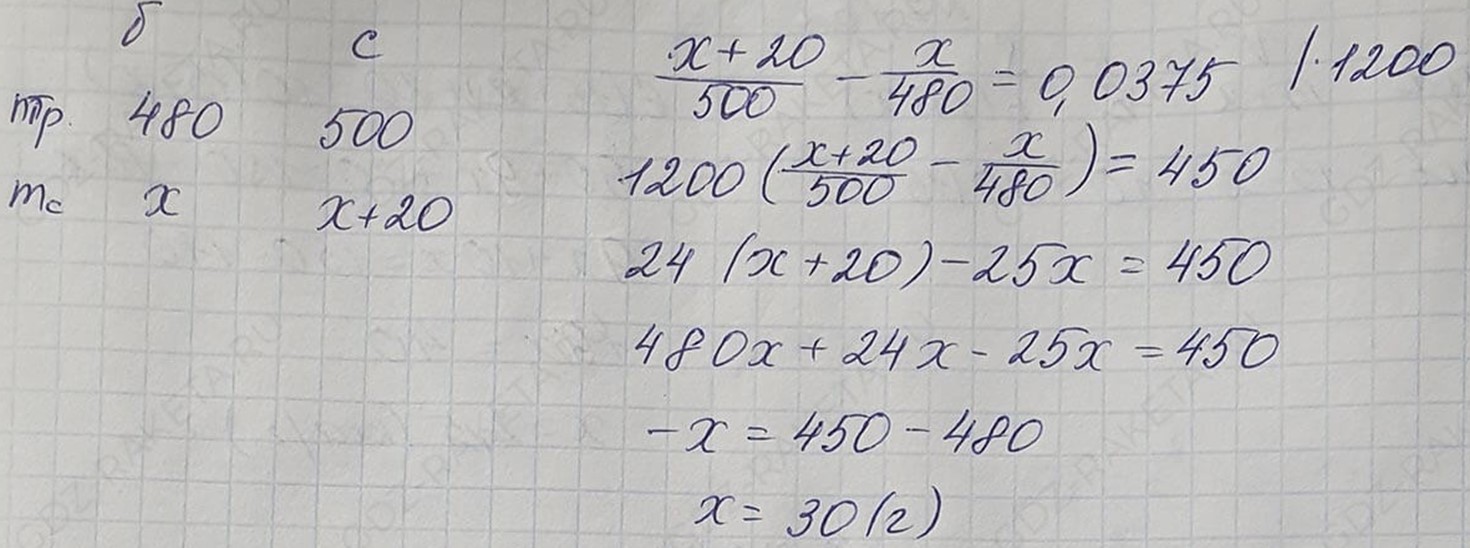 б с
mр. 480 500
mс x x+20
(x+20)/500 - x/480 = 0,0375 |·1200
1200((x+20)/500 - x/480) = 450
24 (x+20) - 25x = 450
480x + 24x - 25x = 450
-x = 450 - 480
x = 30(г)
GDZ-RAKETA.RU